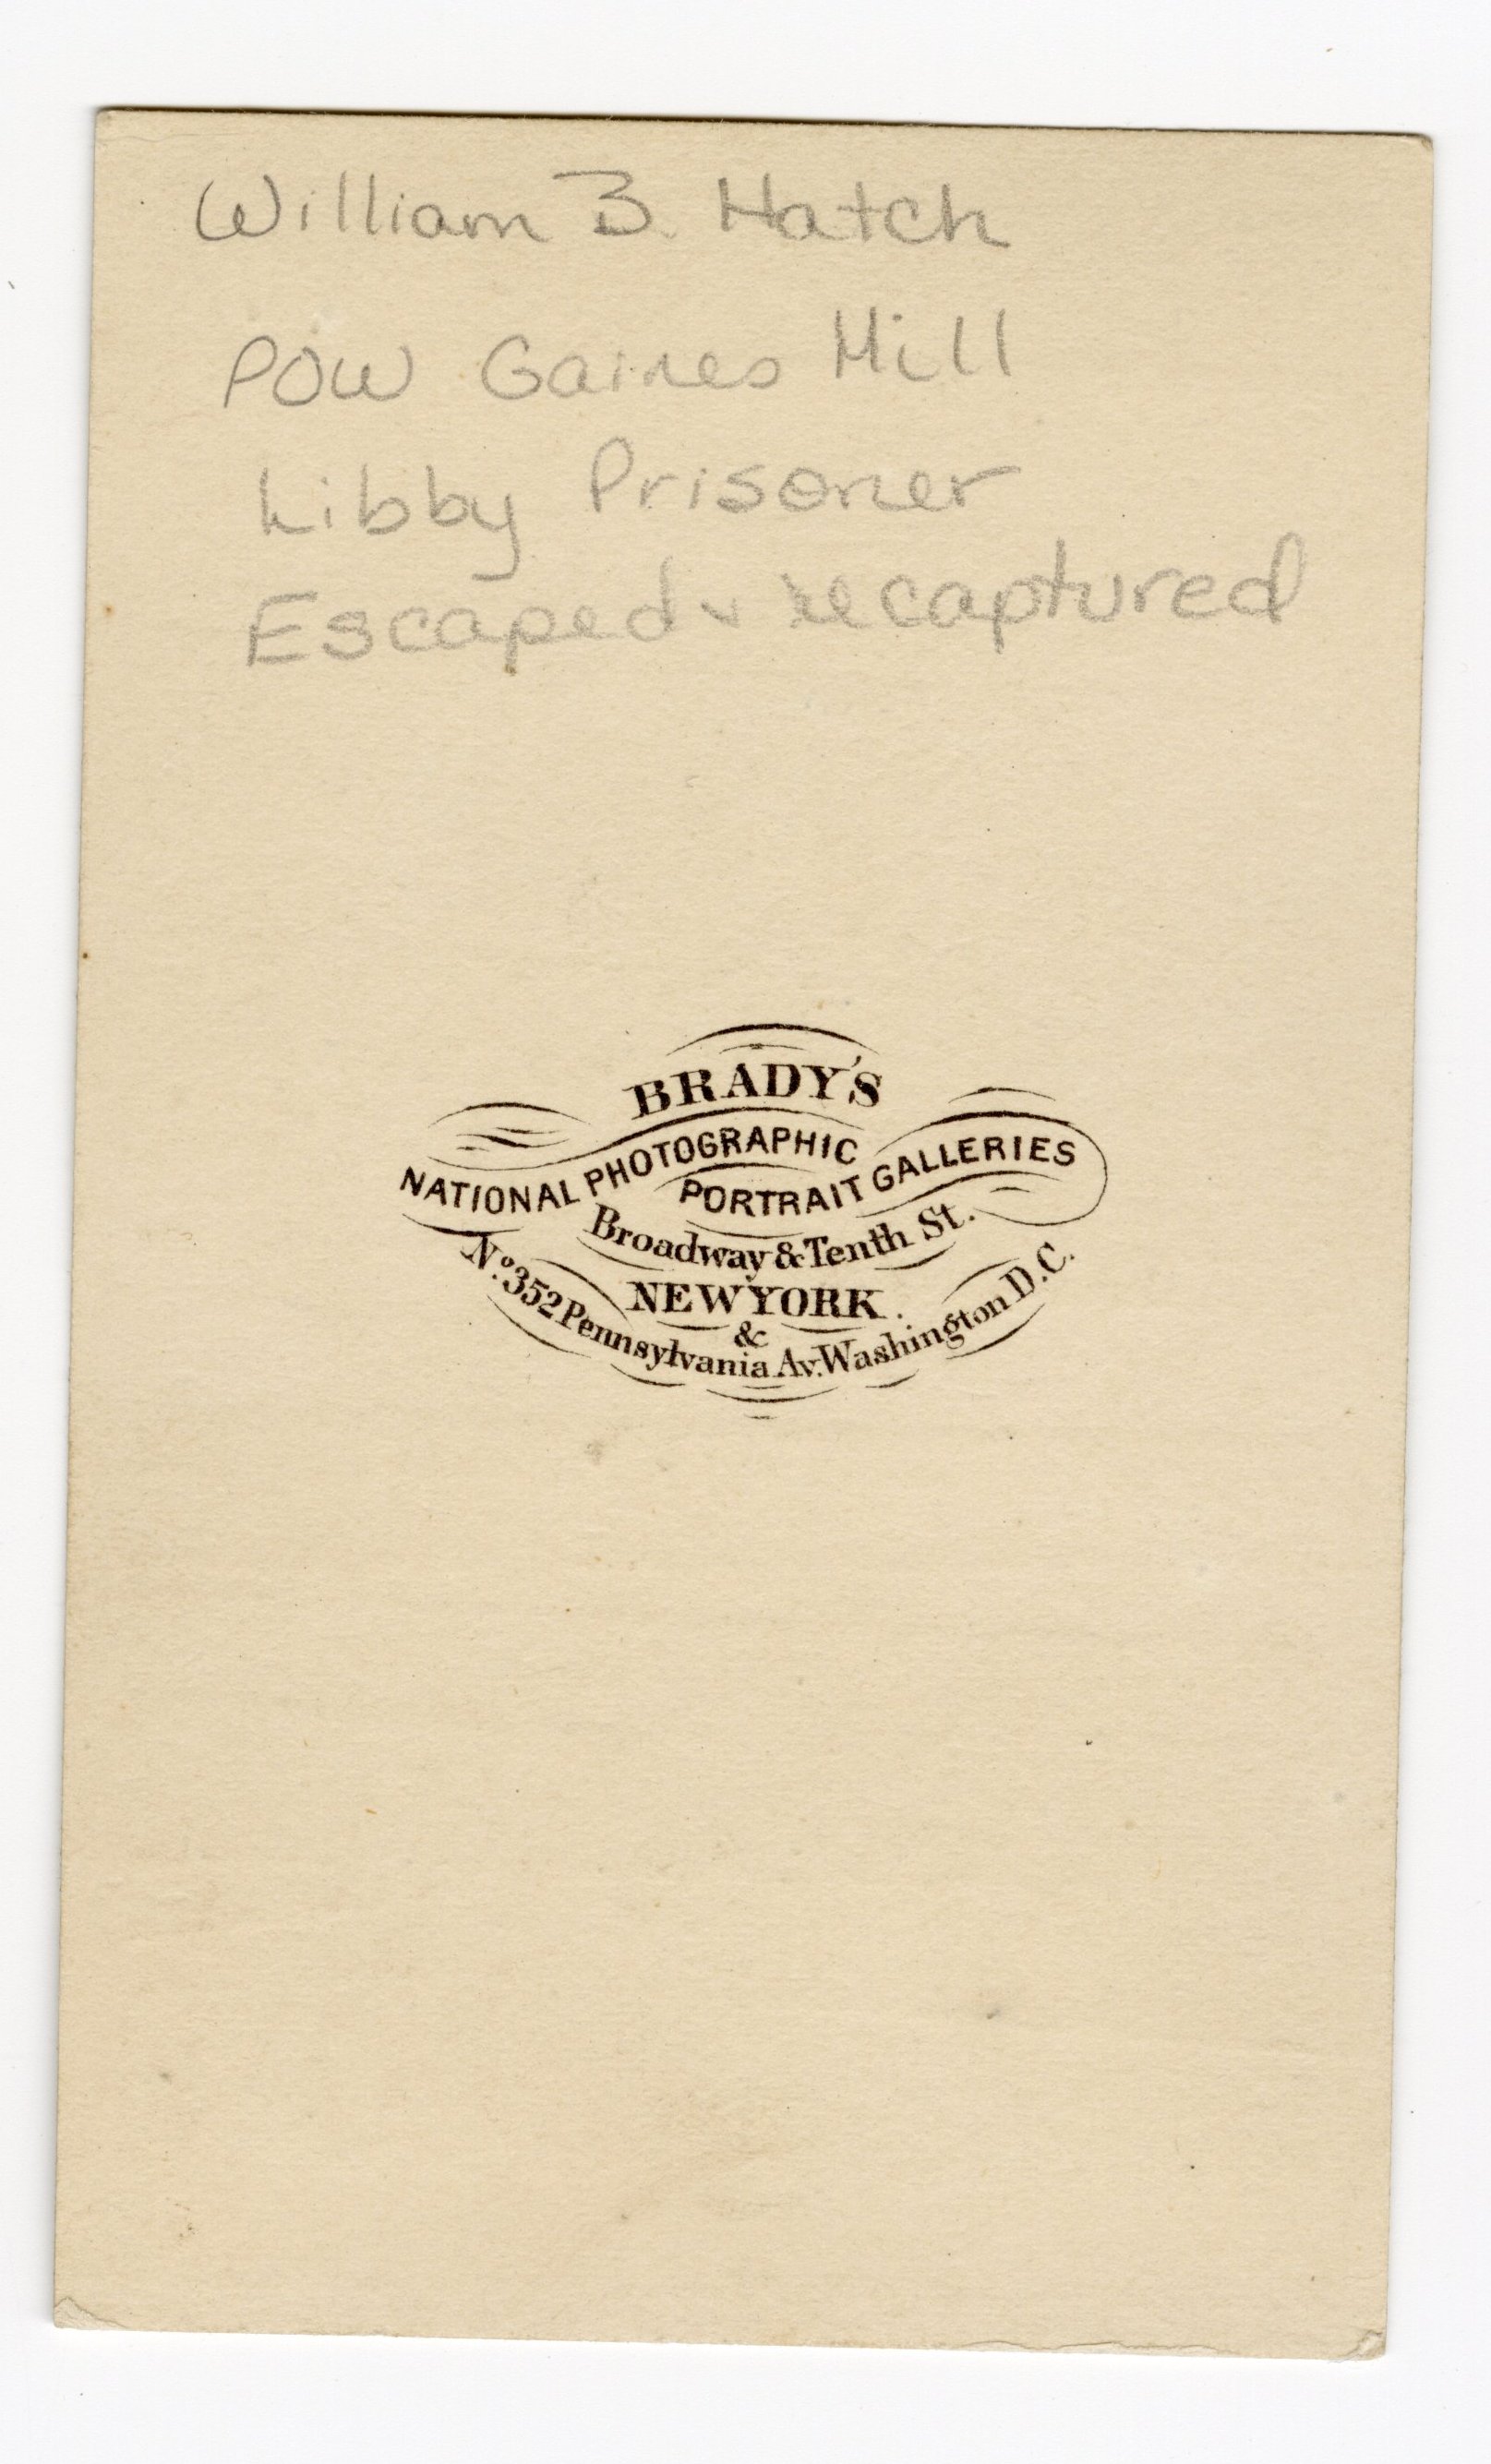 William B. Hatch
POW Gaines Mill
Libby Prisoner
Escaped & recaptured
BRADY'S
NATIONAL PHOTOGRAPHIC
PORTRAIT GALLERIES
Broadway & Tenth St.
NEW YORK.
&
No. 352 Pennsylvania Av. Washington D.C.